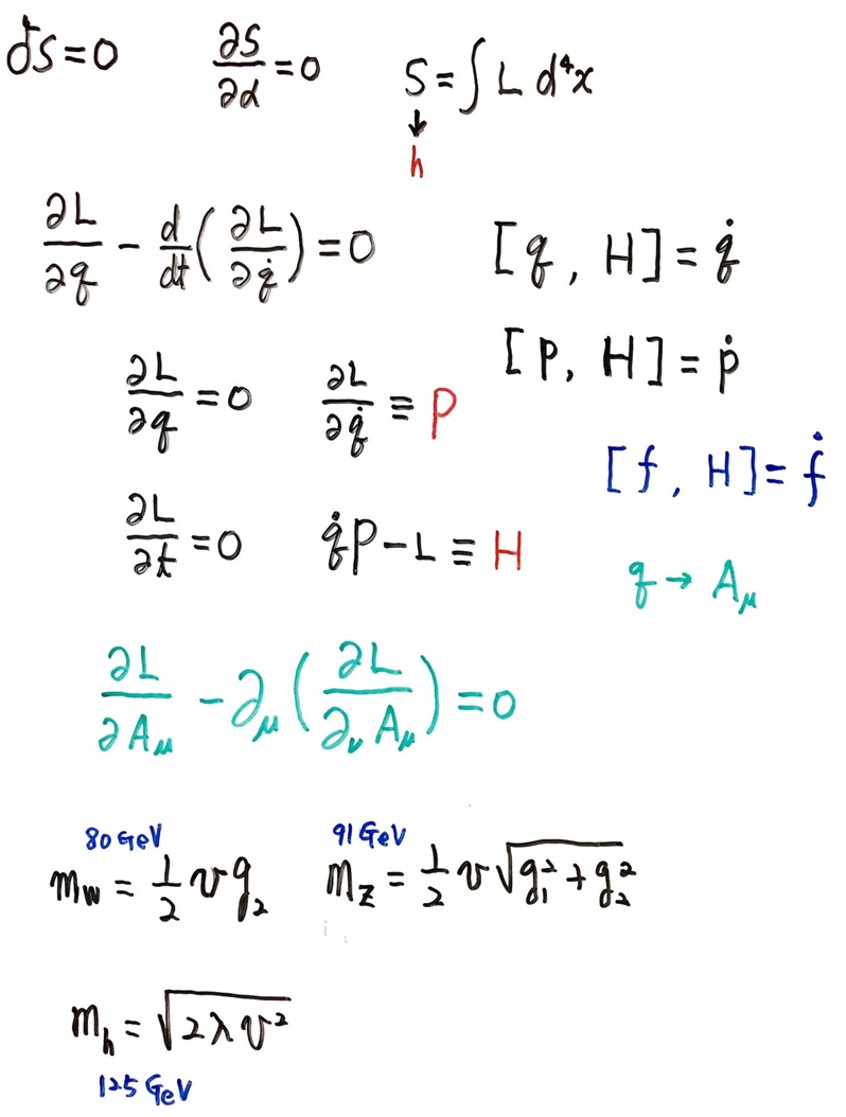 δS=0 ∂S/∂α=0 S=∫L d⁴x
↓
h
∂L/∂q − d/dt(∂L/∂q̇)=0 [q, H]=q̇
[p, H]=ṗ
∂L/∂q=0 ∂L/∂q̇≡P
[f, H]=ḟ
∂L/∂t=0 q̇P−L≡H
q→A_μ
∂L/∂A_μ −∂_μ(∂L/∂_νA_μ)=0
80 GeV 91 GeV
m_W=1/2 v g₂ m_Z=1/2 v√(g₁²+g₂²)
m_h=√(2λv²)
125 GeV